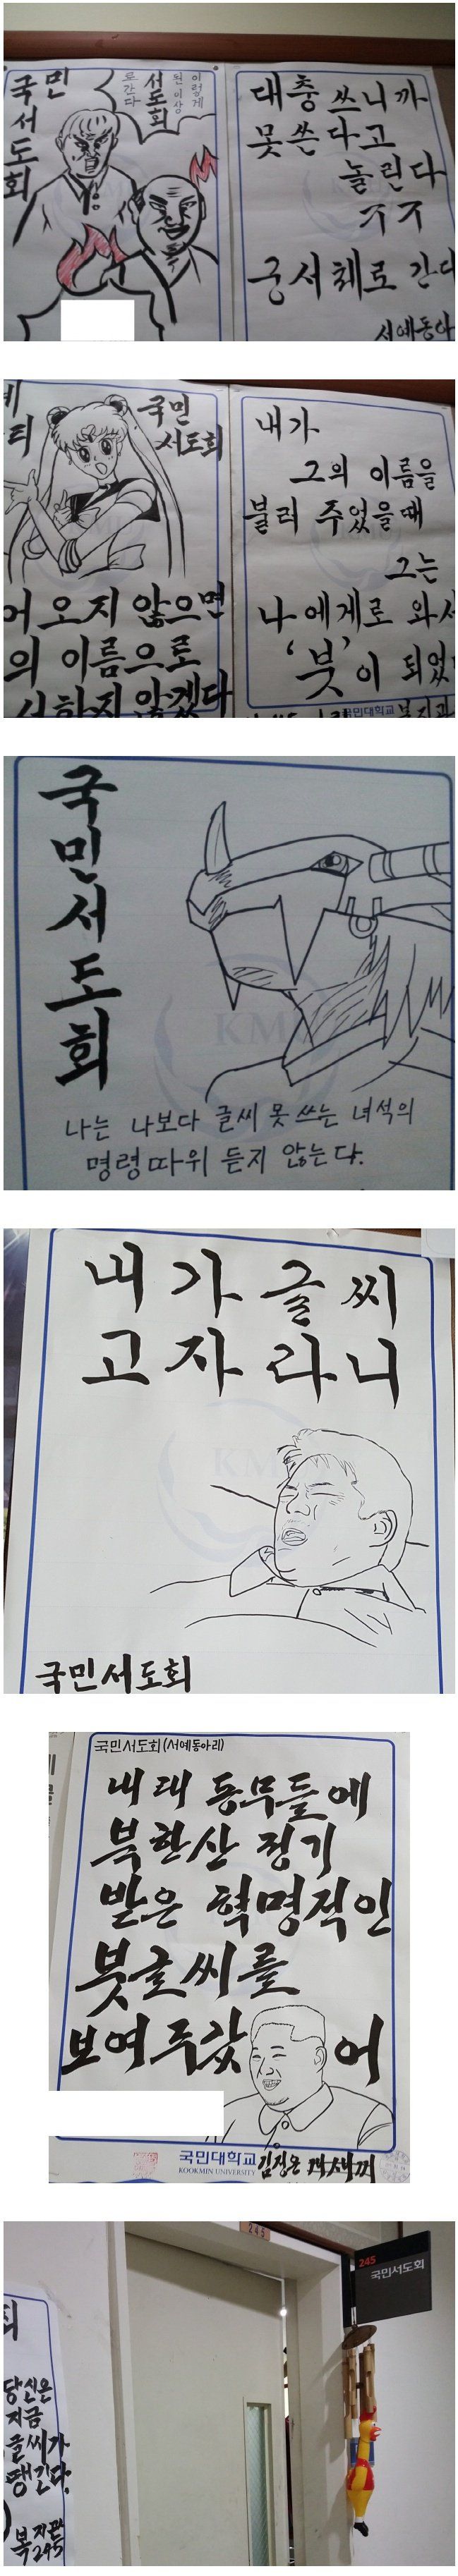 국민
서도회
이렇게
된 이상
서도회
로 간다
대충 쓰니까
못 쓴다고
놀린다
ㅜㅜ
궁서체로 간다
서예동아
국민
서도회
어 오지 않으면
의 이름으로
서하지 않겠다
내가
그의 이름을
불러 주었을 때
그는
나에게로 와서
'붓'이 되었
국민대학교
국민서도회
KM
나는 나보다 글씨 못 쓰는 녀석의
명령 따위 듣지 않는다.
내가 글씨
고자라니
KM
국민서도회
국민서도회(서예동아리)
내래 동무들에
북한산 정기
받은 혁명적인
붓글씨를
보여주갔어
국민대학교
KOOKMIN UNIVERSITY
김정은 개새끼
245
245
국민서도회
티
당신은
지금
글씨가
땡긴다.
복지관
245